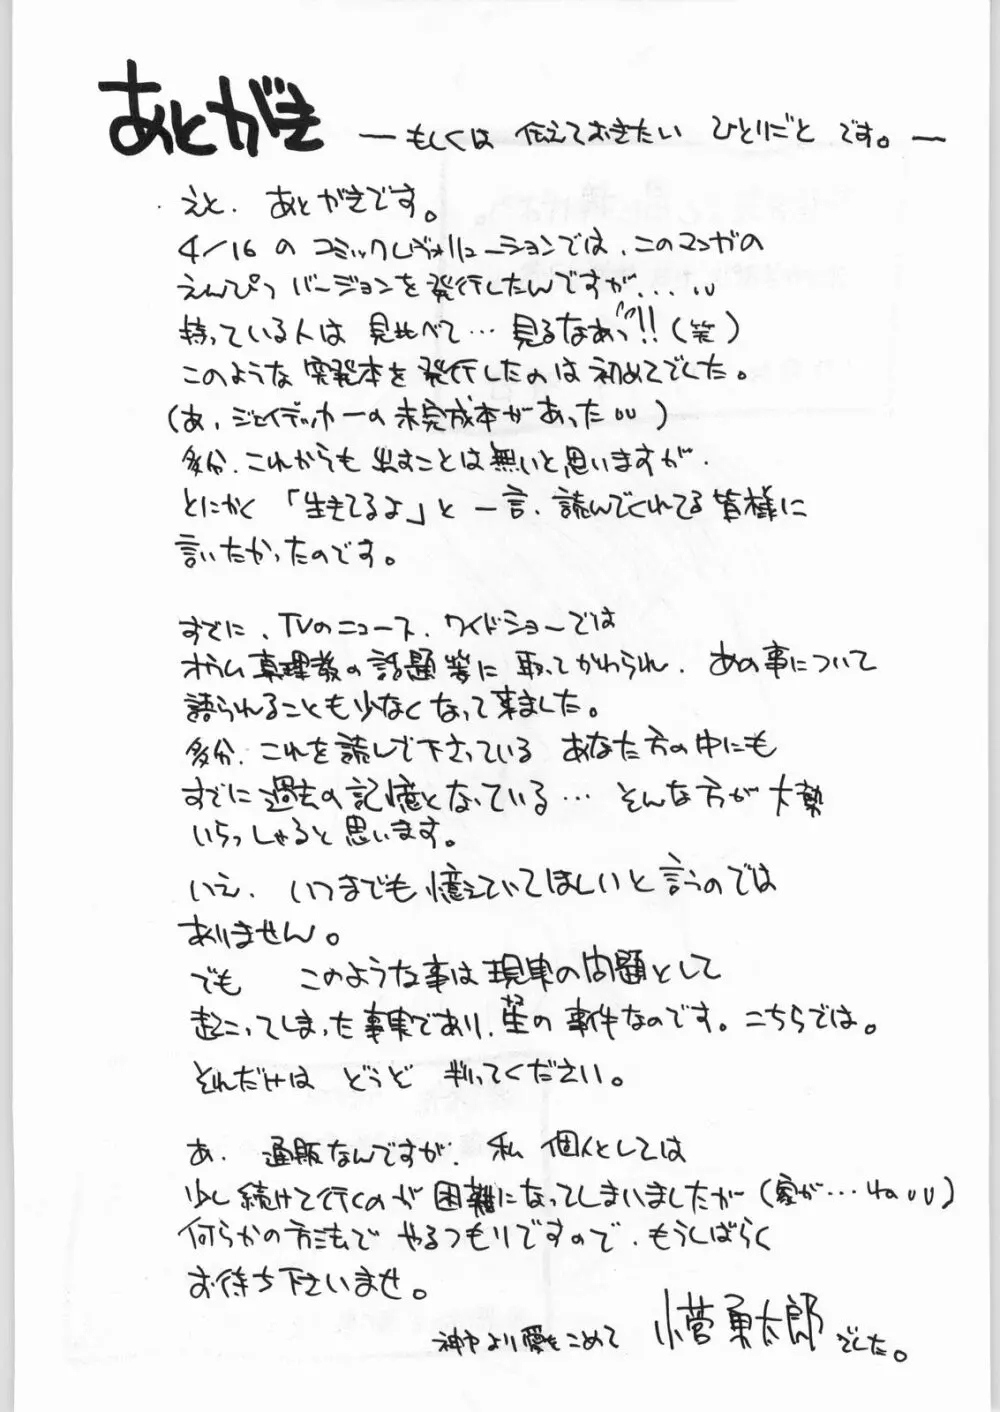 あとがき
― もしくは 伝えておきたい ひとりごと です。―
えと、あとがきです。
4/16 の コミックレヴォリューションでは、このマンガの
えんぴつ バージョンを 発行したんですが...
持っている人は 見比べて… 見るなあっ!!(笑)
このような 突発本を 発行したのは 初めてでした。
(あ、ジェイデッカーの 未完成本が あった)
多分、これからも 出すことは 無いと 思いますが、
とにかく 「生きてるよ」と 一言、読んでくれてる 皆様に
言いたかったのです。
すでに、TVのニュース、ワイドショーでは
オウム 真理教の 話題 等に 取って かわられ、あの事について
語られることも 少なく なって 来ました。
多分、これを 読んで 下さっている あなた方の 中にも
すでに 過去の 記憶と なっている… そんな方が 大勢
いらっしゃると 思います。
いえ、いつまでも 憶えていてほしいと 言うのでは
ありません。
でも このような 事は 現実の 問題として
起こってしまった 事実であり、生の 事件なのです。こちらでは。
それだけは どうぞ 判ってください。
あ、通販なんですが、私 個人としては
少し 続けて 行くのが 困難に なってしまいましたが (家が…ね)
何らかの 方法で やるつもりですので、もうしばらく
お待ち 下さいませ。
神戸より 愛を こめて 小菅 勇太郎 でした。